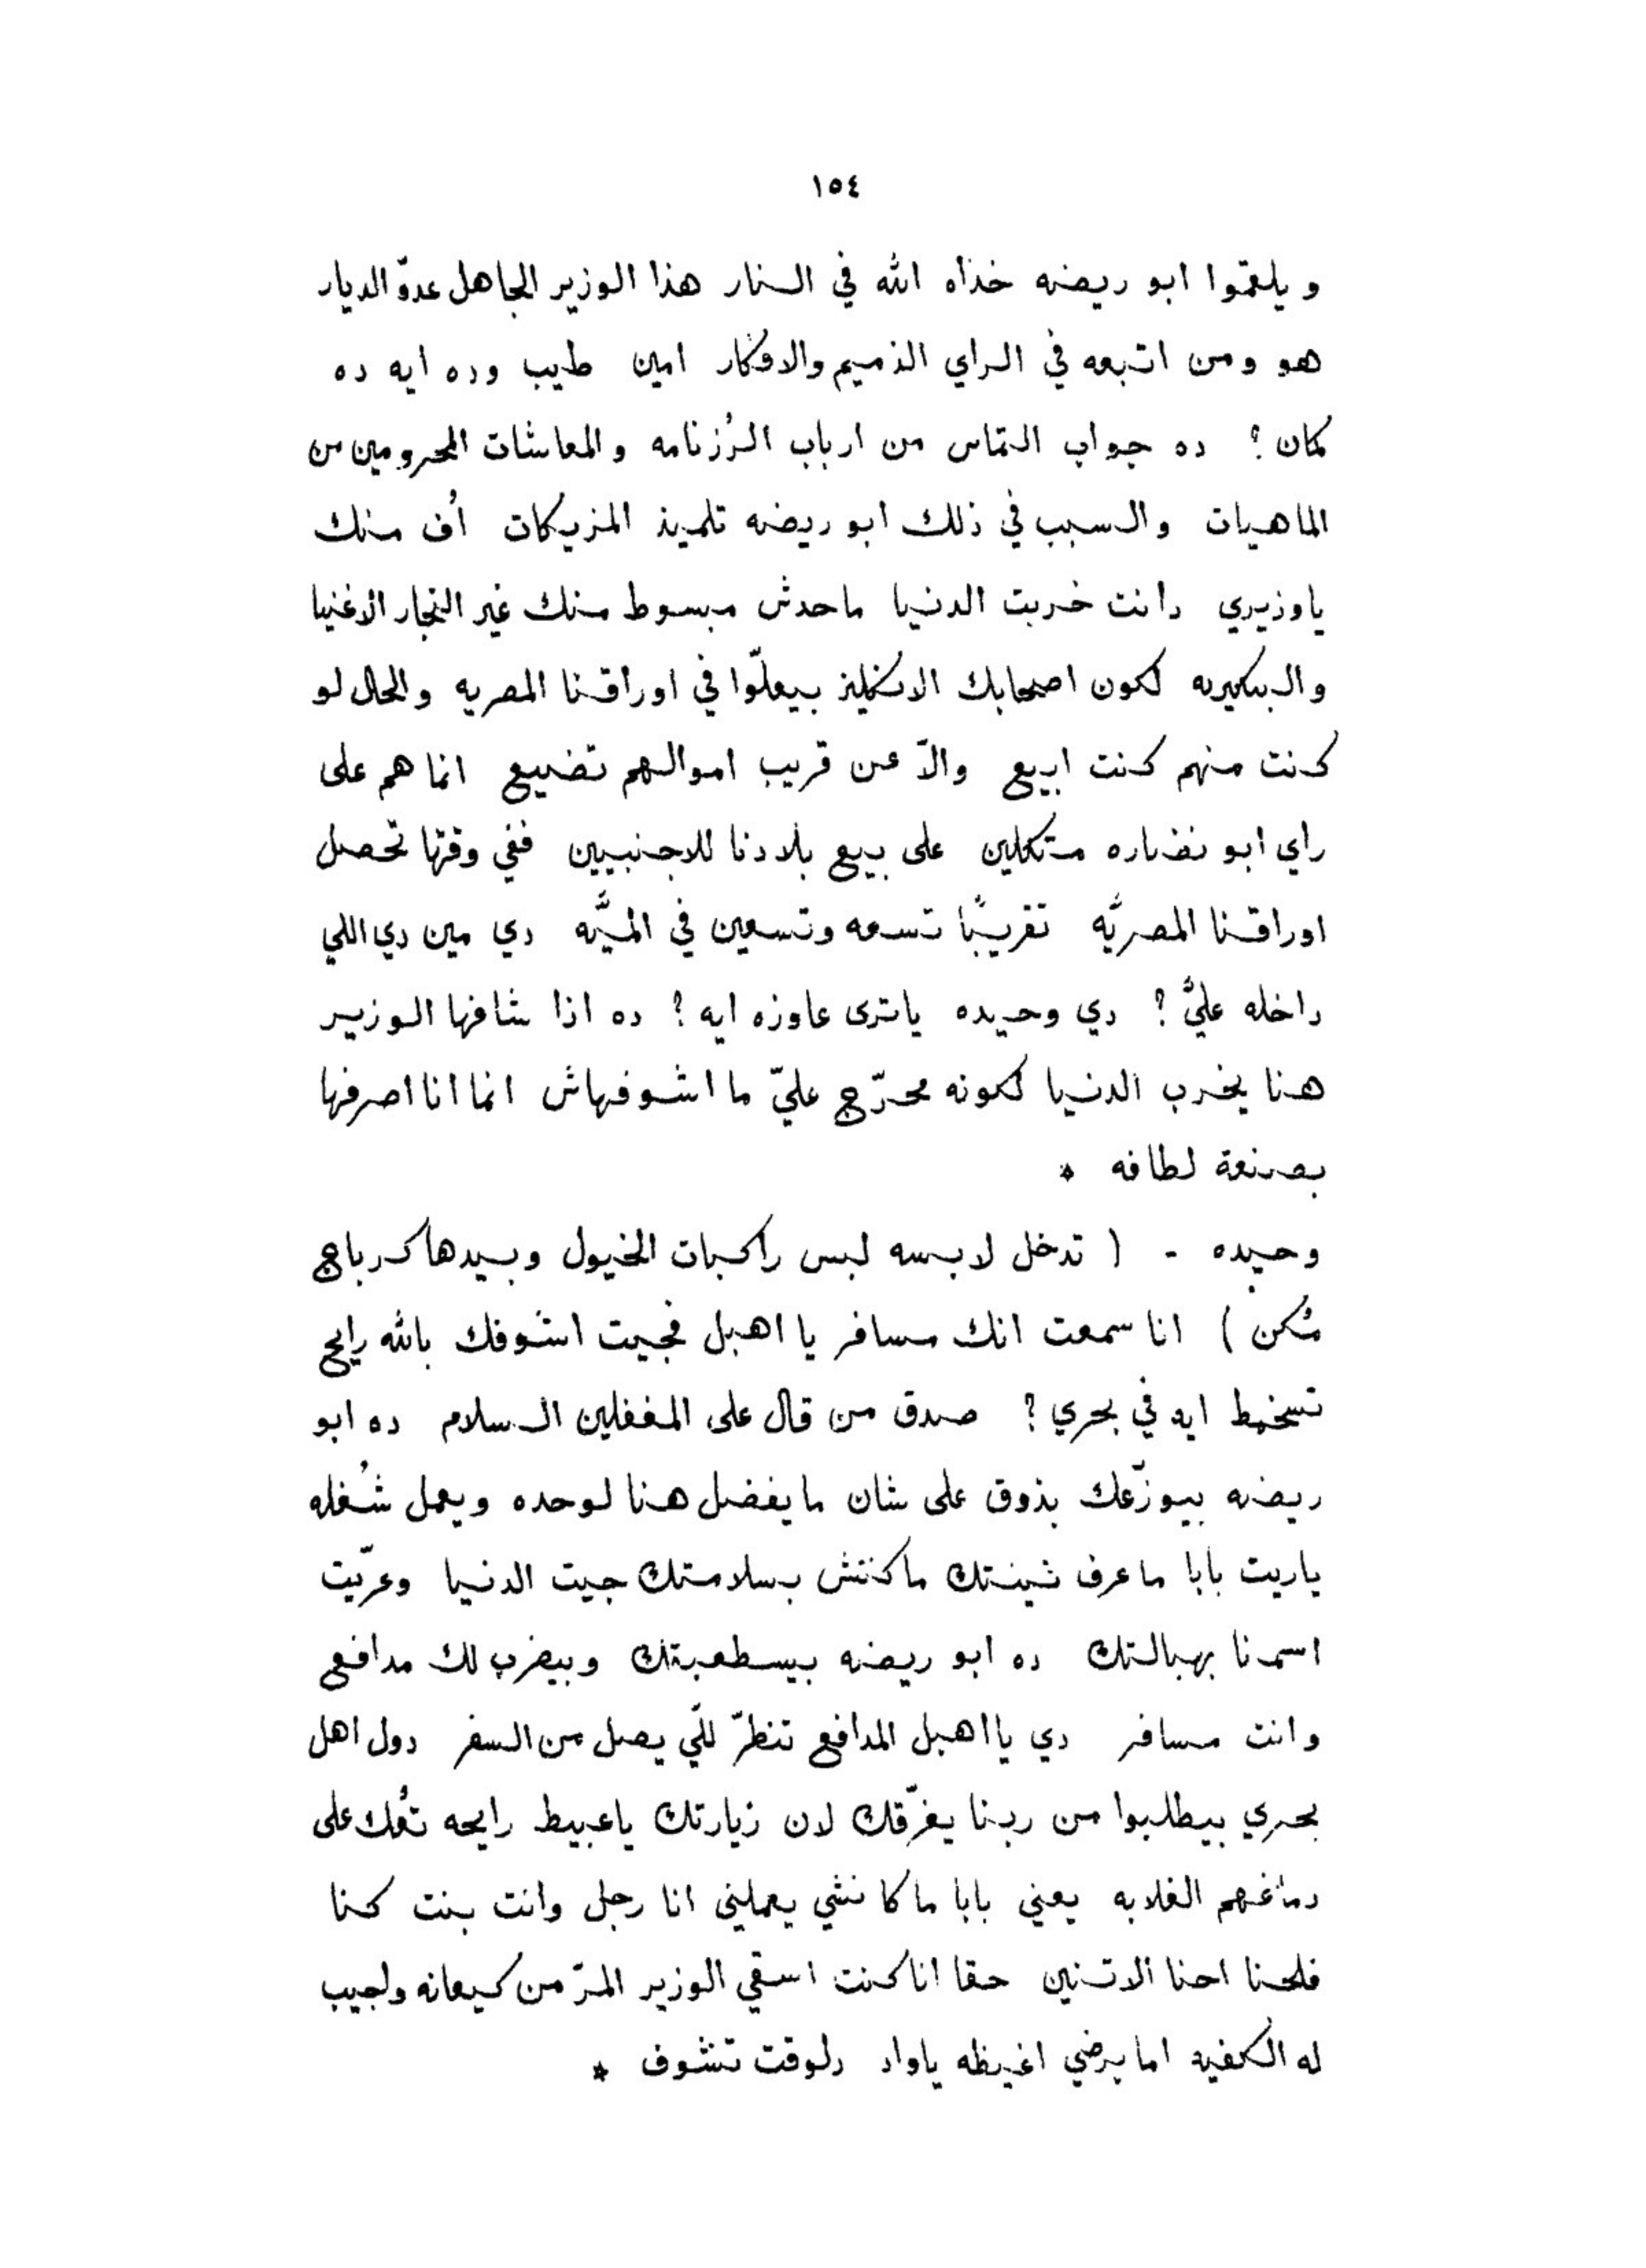 ١٥٤
ويلعقوا ابو ريضه خذاه الله في النار هذا الوزير الجاهل عدوّ الديار
هو ومن اتبعه في الراي الذميم والافكار امين طيب وده ايه ده
كمان ؟ ده جواب التماس من ارباب الرُزنامه والمعاشات المحرومين من
الماهيات والسبب في ذلك ابو ريضه تلميذ المزيكات أُف منك
ياوزيري دانت خربت الدنيا ماحدش مبسوط منك غير التجار الاغنيا
والبنكيريه لكون اصحابك الانكليز بيعلّوا في اوراقنا المصريه والحال لو
كنت منهم كنت ابيع والاّ عن قريب اموالهم تضيع انما هم على
راي ابو نضاره متكلين على بيع بلادنا للاجنبيين ففي وقتها تحصل
اوراقنا المصريَّه تقريبًا تسعه وتسعين في الميَّه دي مين دي اللي
داخله عليَّ ؟ دي وحيده ياترى عاوزه ايه ؟ ده اذا شافها الوزير
هنا يخرب الدنيا لكونه محرّج عليّ ما اشوفهاش انما انا اصرفها
بصنعة لطافه *
وحيده - ( تدخل لابسه لبس راكبات الخيول وبيدها كرباج
مُكن ) انا سمعت انك مسافر يا اهبل فجيت اشوفك بالله رايح
تسخبط ايه في بحري ؟ صدق من قال على المغفلين السلام ده ابو
ريضه بيوزّعك بذوق على شان مايفضل هنا لوحده ويعمل شُغله
ياريت بابا ماعرف نينتك ماكنتش بسلامتك جيت الدنيا وعرّيت
اسمنا بهبالتك ده ابو ريضه بيسطعبتك وبيضرب لك مدافع
وانت مسافر دي يااهبل المدافع تنظرّ للّي يصل من السفر دول اهل
بحري بيطلبوا من ربنا يغرّقك لان زيارتك ياعبيط رايحه تُفك على
دماغهم الغلابه يعني بابا ماكانشي يعملني انا رجل وانت بنت كنا
فلحنا احنا الاتنين حقا اناكنت اسقي الوزير المرّ من كيعانه ولجيب
له الكفيه اما برضي اغيظه ياواد دلوقت تشوف *